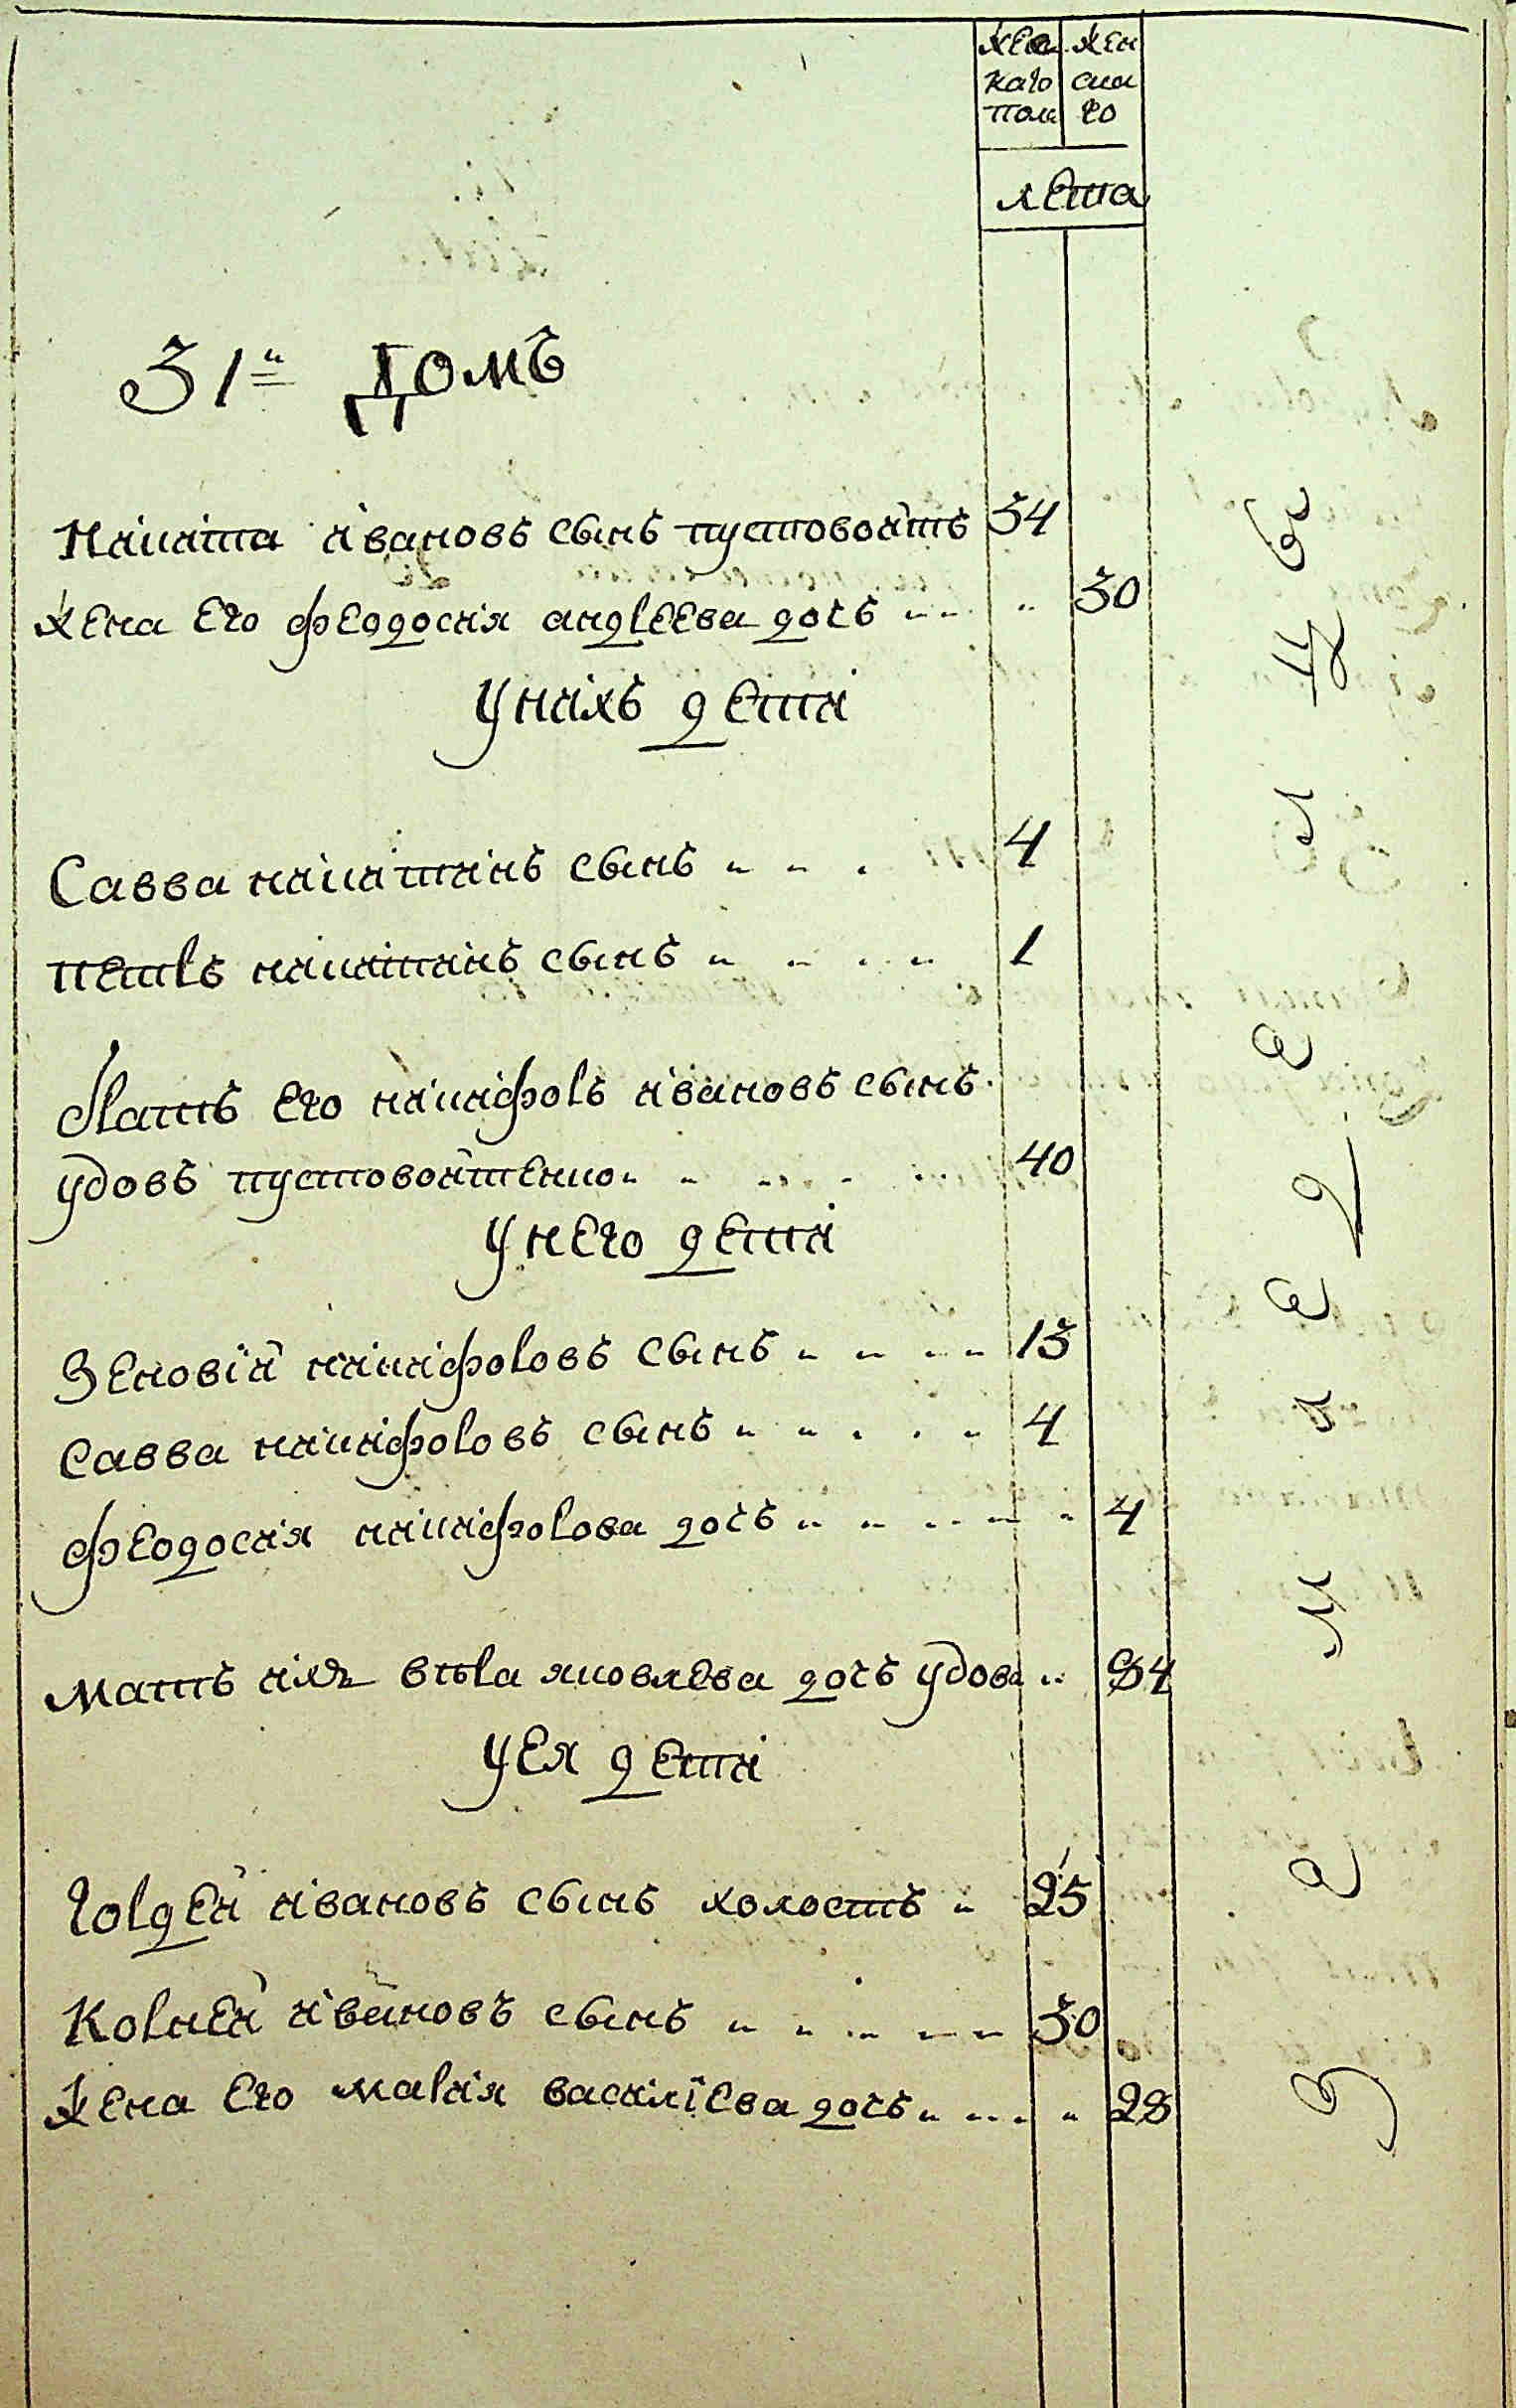 жен
каго
пол
жен
ска
го
лета
31й Домъ
Никита ивановъ сынъ пустовойтъ 34
жена его феодосия андреева дочь 30
У нихъ дети
Савва никитинъ сынъ 4
петръ никитинъ сынъ 1
братъ его никифоръ ивановъ сынъ
удовъ пустовойтенко 40
У него дети
Зеновій никифоровъ сынъ 13
Савва никифоровъ сынъ 4
феодосия никифорова дочь 4
Мать ихъ вѣра яковлева дочь удова 84
У ея дети
гордей ивановъ сынъ холостъ 25
Корней ивановъ сынъ 30
жена его мария василіева дочь 28